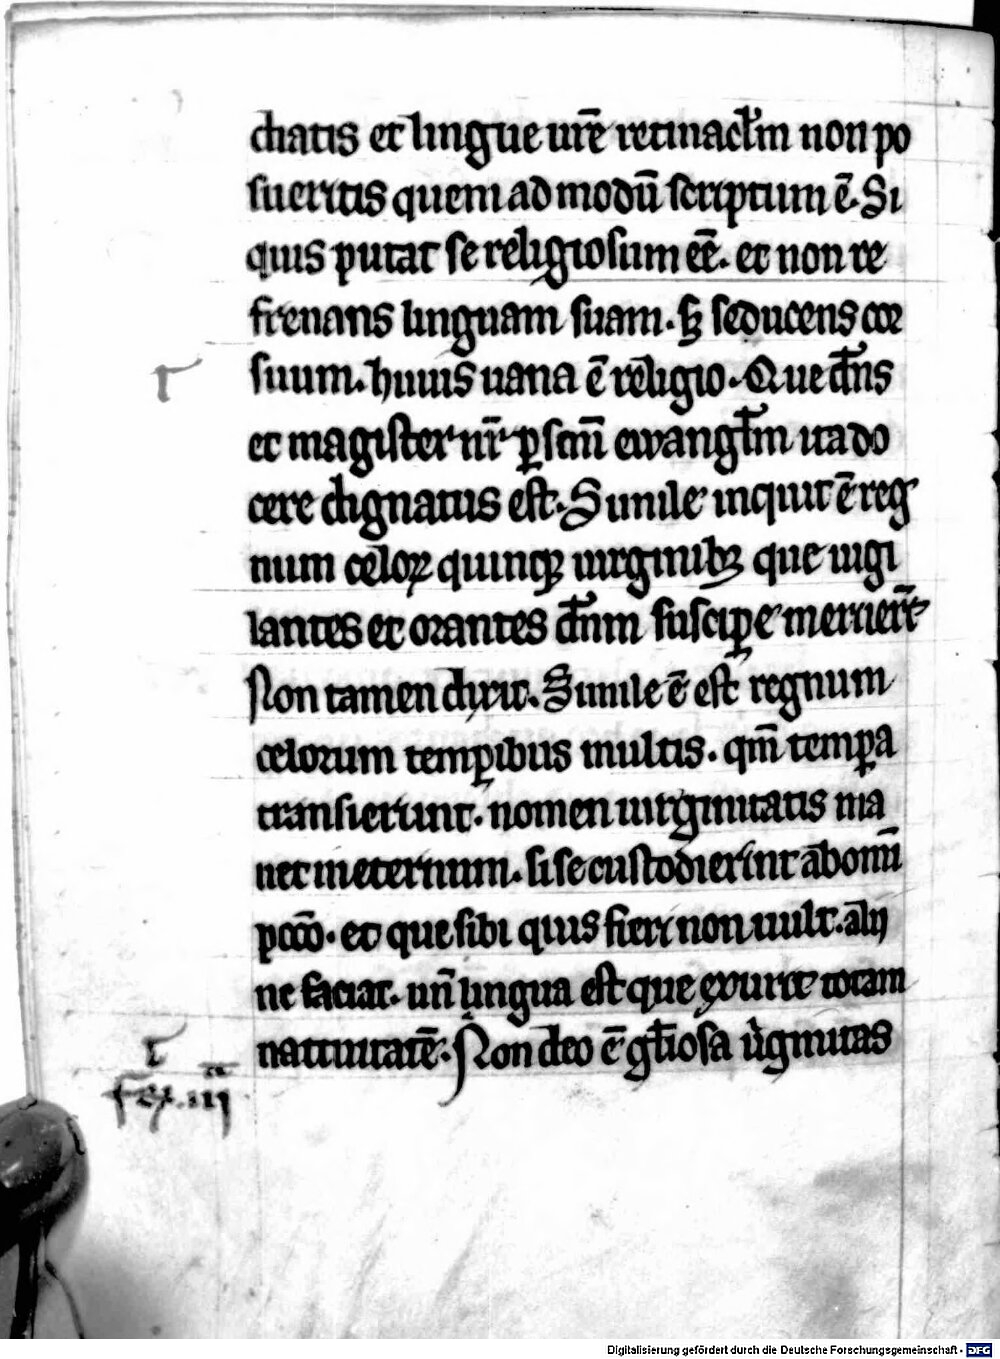 chatis et lingue ur̄e retinacl̄m non po
sueritis quem ad modū scriptum ē. Si
quis putat se religiosum eē. et non re
frenans linguam suam. sꝫ seducens cor
suum. huius uana ē religio. Que dn̄s
et magister nr̄ ꝑ scm̄ ewangl̄m ita do
cere dignatus est. Simile inquit ē reg
num celoꝝ quinqꝫ uirginibꝫ que uigi
lantes et orantes dn̄m suscipꝑe meruer̄t
Non tamen dixit. Simile ē est regnum
celorum temꝑibus multis. qm̄ temꝑa
transierunt. nomen uirginitatis ma
net in eternum. si se custodierint ab om̄i
pccō. et que sibi quis fieri non uult. alij
ne faciat. un̄ lingua est que exurit totam
natiuitatē. Non deo ē gl̄iosa ůginitas
fer. iii
Digitalisierung gefördert durch die Deutsche Forschungsgemeinschaft - DFG